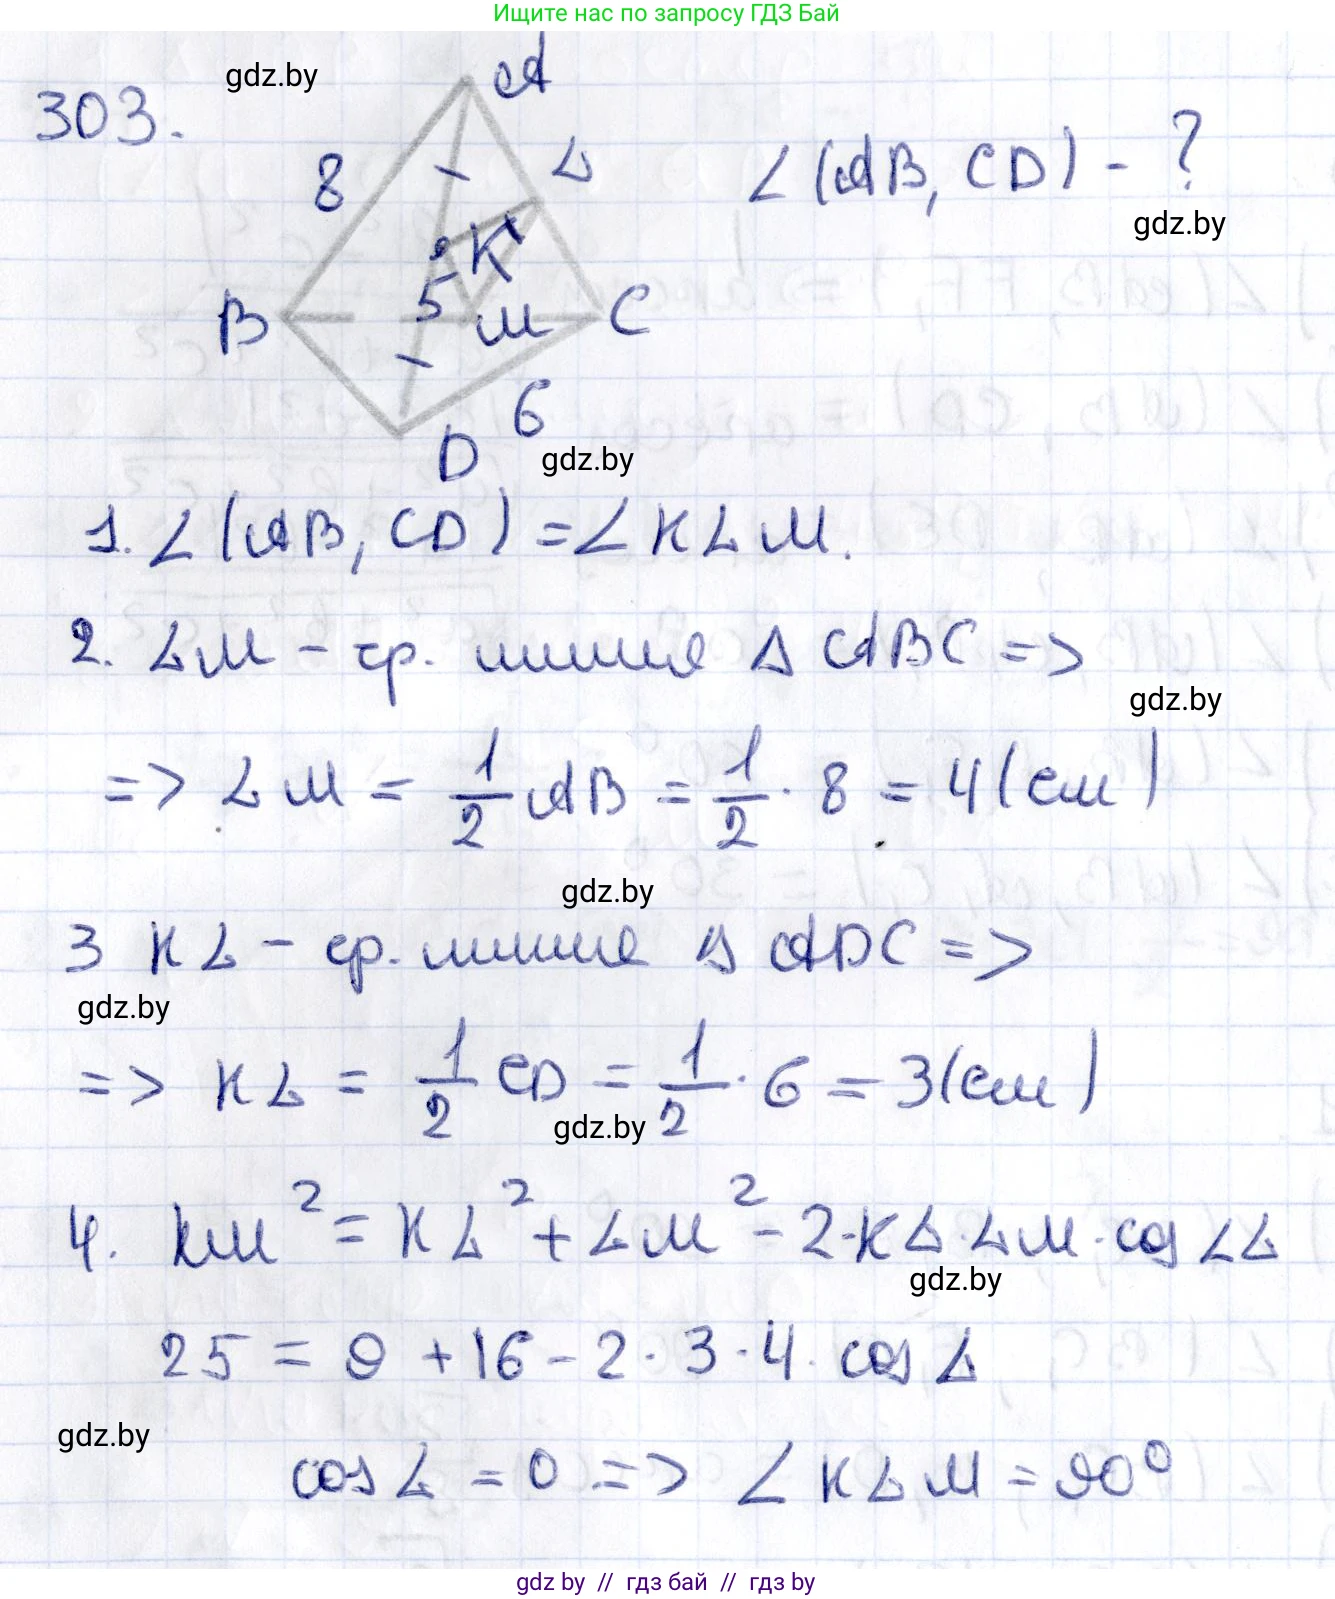 Ищите нас по запросу ГДЗ Бай
gdz.by
303.
A
8
L
∠(AB, CD) - ?
gdz.by
K
5
B
M
C
6
D
gdz.by
1. ∠(AB, CD) = ∠KLM.
2. LM - ср. линия Δ ABC =>
gdz.by
=> LM = 1/2 AB = 1/2 · 8 = 4 (см)
gdz.by
3 KL - ср. линия Δ ADC =>
gdz.by
=> KL = 1/2 CD = 1/2 · 6 = 3 (см)
gdz.by
4. KM² = KL² + LM² - 2·KL·LM·cos ∠L
gdz.by
25 = 9 + 16 - 2 · 3 · 4 · cos L
gdz.by
cos L = 0 => ∠ KLM = 90°
gdz by // гдз бай // гдз by